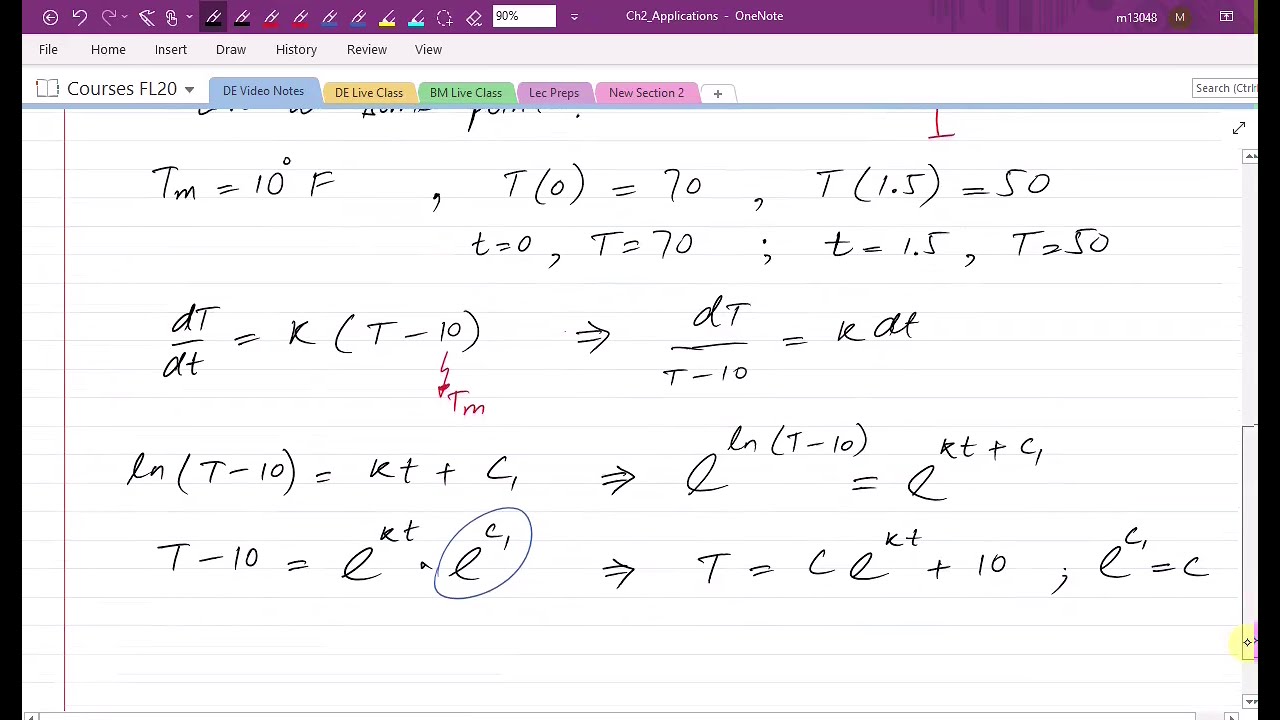 90%
Ch2_Applications - OneNote
m13048 M
File Home Insert Draw History Review View
Courses FL20 DE Video Notes DE Live Class BM Live Class Lec Preps New Section 2 + Search (Ctrl
Tm = 10° F , T(0) = 70 , T(1.5) = 50
t=0 , T=70 ; t = 1.5 , T=50
dT/dt = K (T-10) ⇒ dT/(T-10) = k dt
Tm
ln(T-10) = kt + C₁ ⇒ e^(ln(T-10)) = e^(kt + C₁)
T-10 = e^(kt) · e^(C₁) ⇒ T = C e^(kt) + 10 ; e^(C₁) = C